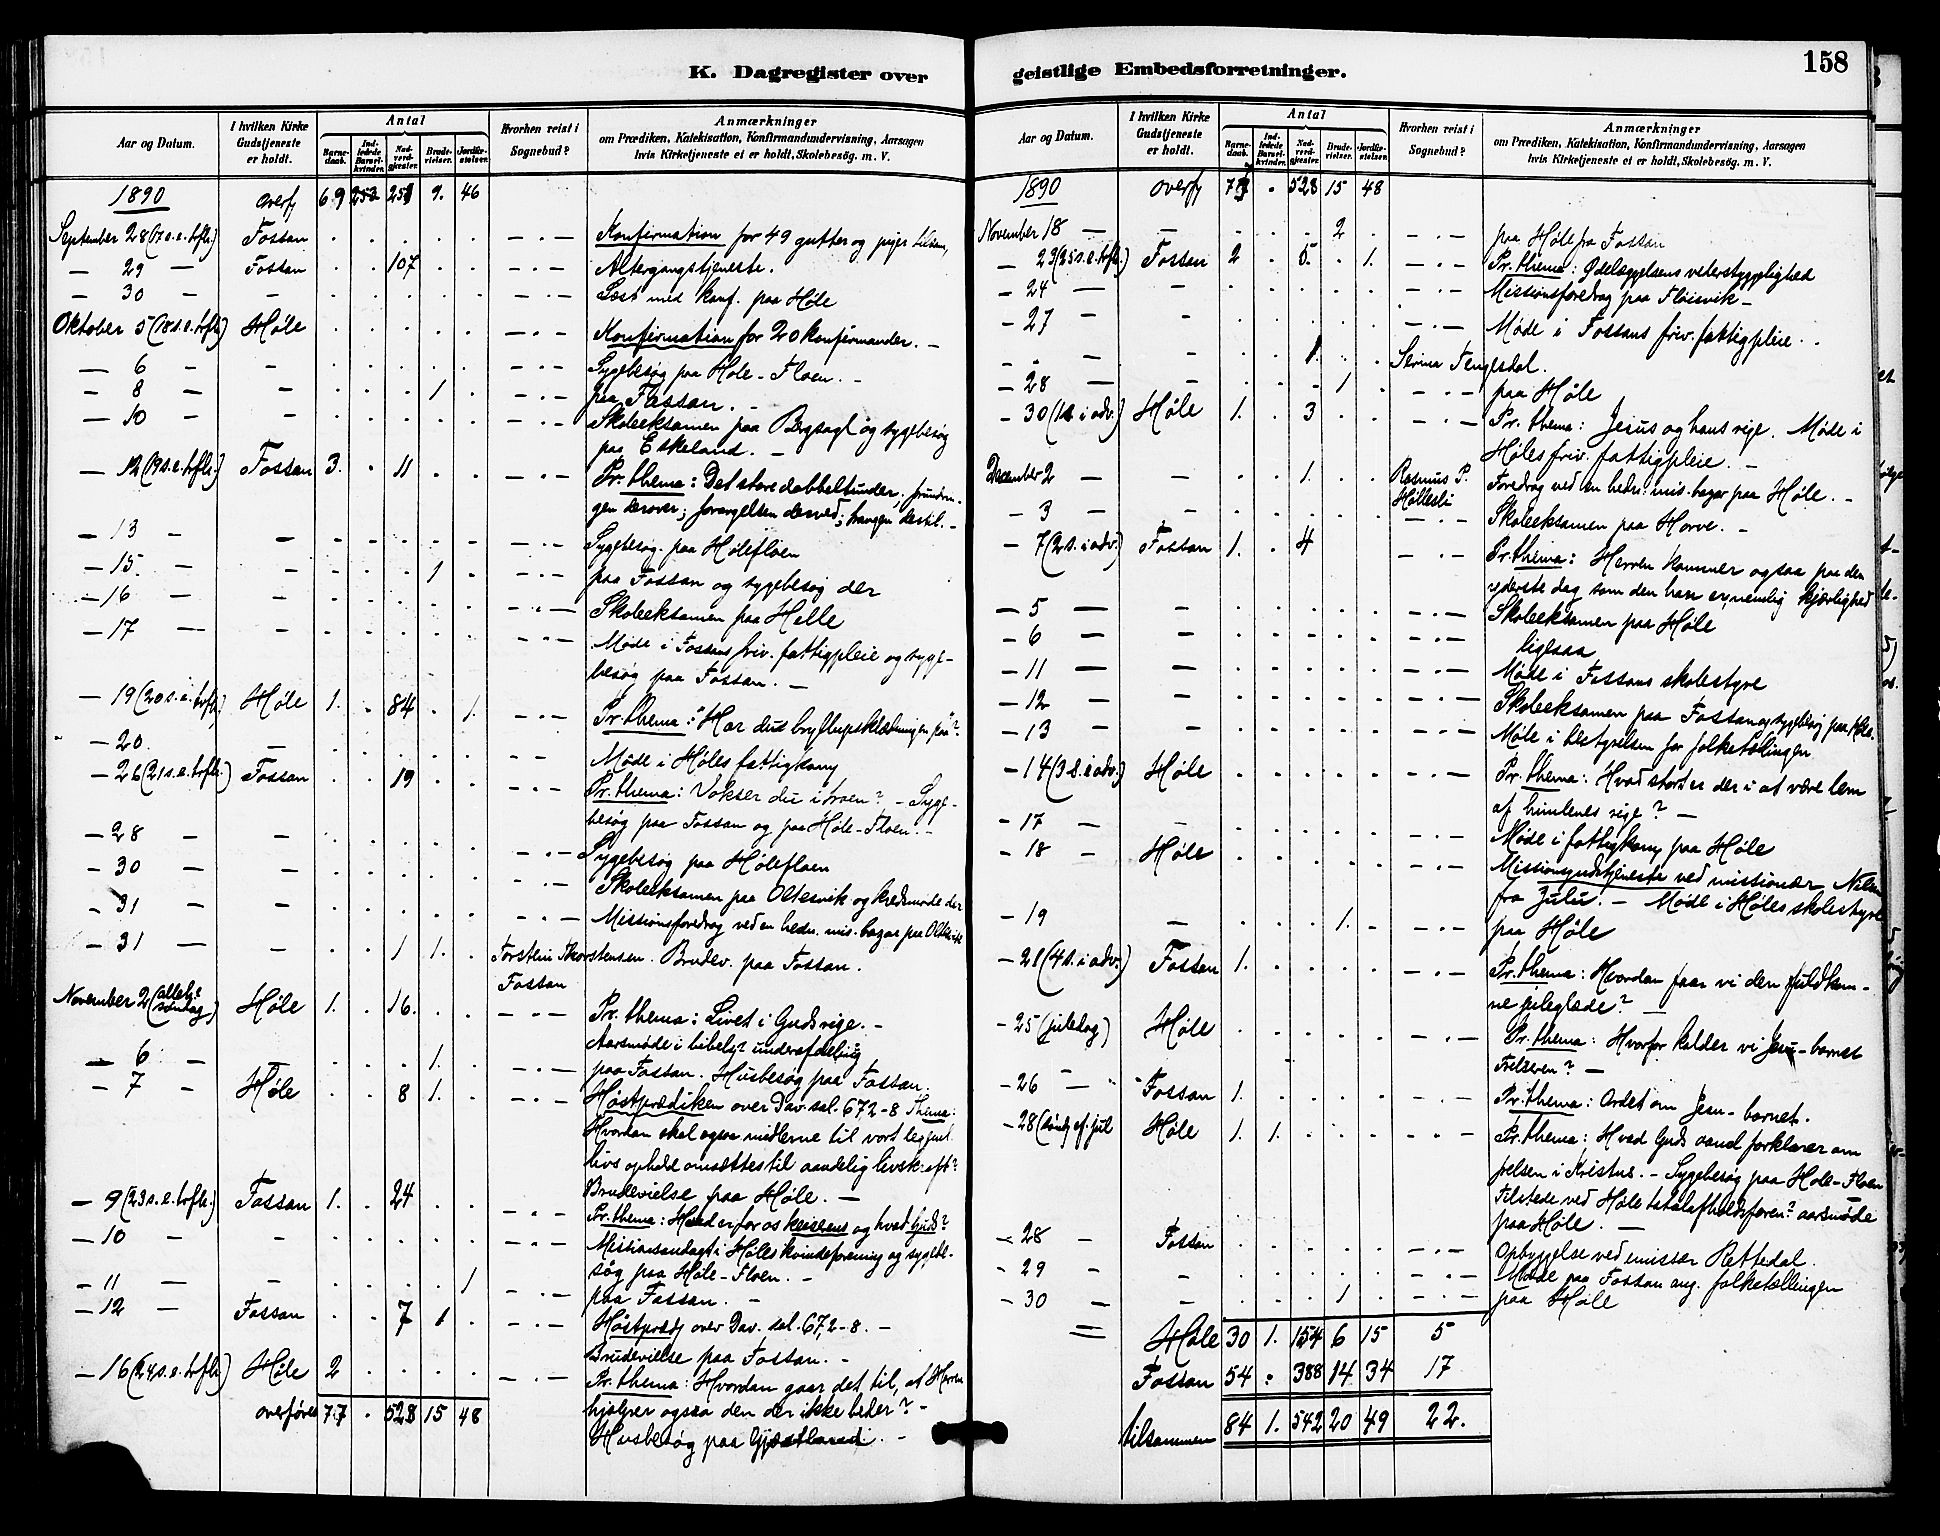 K. Dagregister over
Aar og Datum. I hvilken Kirke Gudstjeneste er holdt. Antal Barnedaab. Indledede Barselkvinder. Nadverdgjester. Brudevielser. Jordfæstelser. Hvorhen reist i Sognebud? Anmærkninger
om Prædiken, Katekisation, Konfirmandundervisning, Aarsagen
hvis Kirketjeneste ei er holdt, Skolebesøg. m. V.
1890 overf 69 251 9. 46
September 28 (17 s. e. trflr.) Fossan . . . . . — . — Konfirmation for 49 gutter og piger
— 29 — Fossan . . 107 . . — . — Altergangstjeneste.
— 30 — — . . . . . — . — Læst med konf. paa Høle
Oktober 5 (18 s. e. trflr.) Høle . . . . . — . — Konfirmation for 20 konfirmander. —
— 6 — — . . . . . — . — Sygebesøg paa Høle-Floen. —
— 8 — — . . . 1 . — . — paa Fossan. —
— 10 — — . . . . . — . — Skoleeksamen paa Bergsagl og sygebesøg
paa Eskeland. —
— 12 (19 s. e. trflr.) Fossan 3. . 11 . . — . — Pr. thema: Det store dobbeltunder; forundrin-
gen derover; forargelsen derved; trangen dertil. —
— 13 — — . . . . . — . — Sygebesøg paa Hølefloen
— 15. — — . . . 1 . — . — paa Fossan og sygebesøg der
— 16 — — . . . . . — . — Skoleeksamen paa Helle
— 17 — — . . . . . — . — Møde i Fossans friv. fattigpleie og syge-
besøg paa Fossan. —
— 19 (20 s. e. trflr.) Høle 1. . 84 . 1. — . — Pr. thema: "Har du bryllupsklædningen paa"?
— 20. — . . . . . Møde i Høles fattigkomm
— 26 (21 s. e. trflr.) Fossan . . 19 . . — . — Pr. thema: Vokser du i troen? — Syge-
besøg paa Fossan og paa Høle-Floen. —
— 28 — — . . . . . — . — Sygebesøg paa Hølefloen
— 30 — — . . . . . — . — Skoleeksamen paa Oltesvik og kredsmøde der
— 31 — — . . . . . — . — Missionsforedrag ved en hedn. mis. bazar paa Oltesvik
— 31 — — . . 1 1. . Torstein Thorstensen Fossan Brudev. paa Fossan.
November 2 (allehs søndag) Høle 1. . 16. . . — . — Pr. thema: Livet i Guds rige. —
Aarsmøde i bibels? underafdeling
— 6 — — . . . 1. . — . — paa Fossan. Husbesøg paa Fossan.
— 7 — Høle . . 8 1. . — . — Høstprædiken over Dav. sal. 67 2-8 Thema:
Hvordan skal ogsaa midlerne til vort legeml.
livs ophold omsættes til aandelig livskraft?
Brudevielse paa Høle. —
— 9 (23 s. e. trflr.) Fossan 1. . 24 . . — . — Pr. thema: Hvad er for os keiserens og hvad Guds?
— 10 — — . . . . . — . — Missionsandagt i Høles kvindeforening og sygebe-
søg paa Høle-Floen. —
— 11 — — . . . . 1 — . — paa Fossan. —
— 12 — Fossan . . 7 1 . Høstpræd over Dav. sal. 67, 2-8. —
Brudevielse paa Fossan. —
— 16 (24 s. e. trflr) Høle 2 . . . . — . — Pr. thema: Hvordan gaar det til, at Herren
hjælper ogsaa den der ikke beder? —
Husbesøg paa Gjestland. —
overføres 77 . 528 15 48
geistlige Embedsforretninger. 158
Aar og Datum. I hvilken Kirke Gudstjeneste er holdt. Antal Barnedaab. Indledede Barselkvinder. Nadverdgjester. Brudevielser. Jordfæstelser. Hvorhen reist i Sognebud? Anmærkninger
om Prædiken, Katekisation, Konfirmandundervisning, Aarsagen
hvis Kirketjeneste ei er holdt, Skolebesøg. m. V.
1890 overf 77 . 528 15 48
November 18 — — . . . 2 . — . — paa Høle fra Fossan
— 23 (25 s. e. trflr.) Fossan 2 . 5. . 1. — . — Pr. thema: Ødelæggelsens vederstyggelighed
— 24 — — . . . . . — . — Missionsforedrag paa Fløisvik —
— 27 — — . . . . . — . — Møde i Fossans friv. fattigpleie. .
— . — — . . 1. . . Serina Tengesdal.
— 28 — — . . . 1 . paa Høle
— 30 (1 s. i adv.) Høle 1. . 3 . . — . — Pr. thema: Jesus og hans rige. Møde i
Høles friv. fattigpleie. —
December 2 — — . . 1. . . Rasmus P. Høllesli Foredrag ved en hedn. mis. bazar paa Høle. —
— 3 — — . . . . . — . — Skoleeksamen paa Horve. —
— 7 (2 s. i adv.) Fossan 1. . 4 . . — . — Pr. thema: Herren kommer ogsaa paa den
yderste dag som den han er, nemlig kjærlighed
— 5 — — . . . . . — . — Skoleeksamen paa Høle
— 6 — — . . . . . — . — ligesaa
— 11 — — . . . . . — . — Møde i Fossans skolestyre
— 12 — — . . . . . — . — Skoleeksamen paa Fossan og sygebesøg paa Høle.
— 13 — — . . . . . — . — Møde i bestyrelsen for folketællingen
— 14 (3 s. i adv.) Høle . . . . . — . — Pr. thema: Hvad stort er der i at være lem
af himlenes rige? —
— 17 — — . . . . . Møde i fattigkom paa Høle
— 18 — Høle . . . . . — . — Missionsgudstjeneste ved missionær Nilsen
fra Zulu. — Møde i Høles skolestyre
— 19 — . . . 1. . — . — paa Høle
— 21 (4 s. i adv.) Fossan 1. . . . . — . — Pr. thema: Hvordan faar vi den fuldkom-
ne juleglæde? —
— 25 (juledag) Høle . . . . . — . — Pr. thema: Hvorfor kalder vi Jesu-barnet
Frelseren? —
— 26 — Fossan 1. . . . . — . — Pr. thema: Ordet om Jesu-barnet.
— 28 (sønd. ef. jul Høle 1. 1. . . . — . — Pr. thema: Hvad Guds aand forklarer om
frelsen i Kristus. — Sygebesøg paa Høle-Floen
Tilstede ved Høle totalafholdsforen? aarsmøde
paa Høle. —
— 28 — Fossan . . . . . — . — Opbyggelse ved emissær Rettedal.
— 29 — — . . . . . — . — Møde paa Fossan ang. folketællingen
— 30 — — . . . 1 . — . — paa Høle
Høle 30 1. 154 6 15 5
Fossan 54 : 388 14 34 17
tilsammen 84 1. 542 20 49 22.